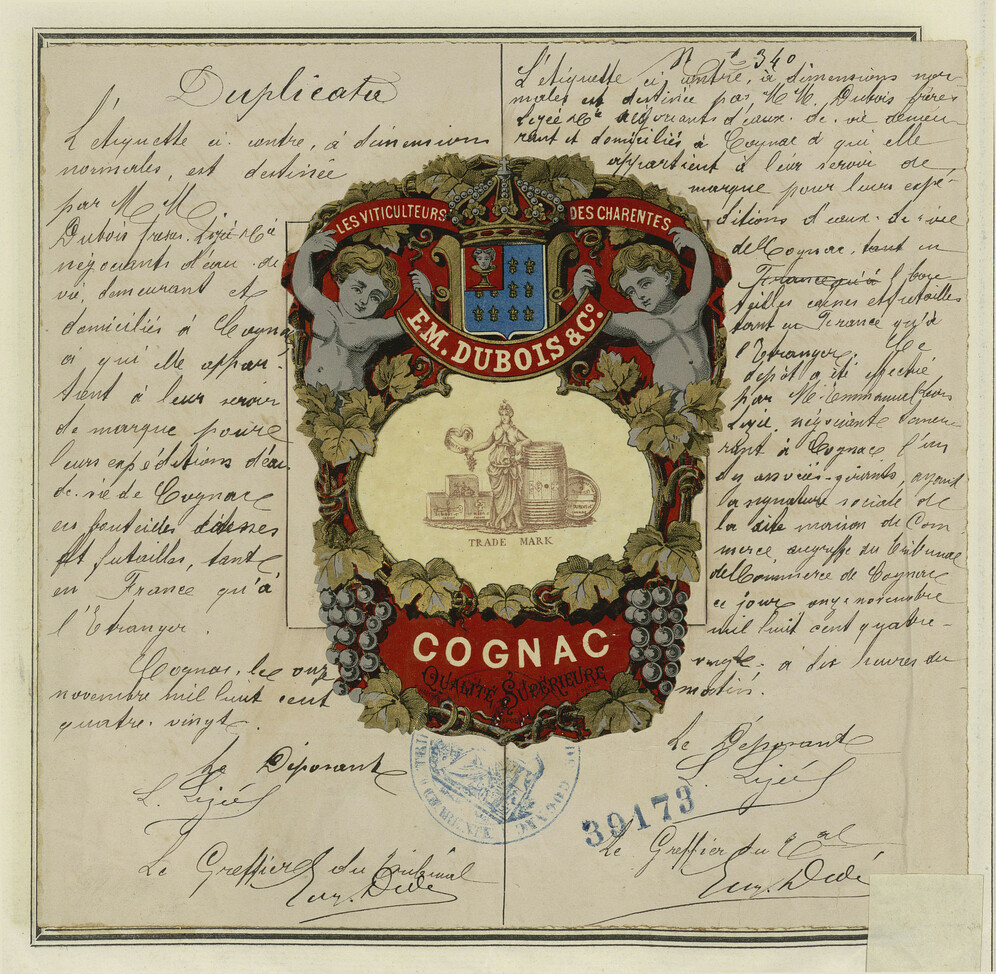 Duplicata
L'étiquette ci contre, à dimensions
normales, est destinée
par M M
Dubois frères, Lizée & Cie
négociants d'eau-de-
vie, demeurant et
domiciliés à Cognac
à qui elle appar-
tient à leur servir
de marque pour
leurs expéditions d'eau
de-vie de Cognac
en bouteilles caisses
et futailles, tant
en France qu'à
l'Etranger.
Cognac, le onze
novembre mil huit cent
quatre-vingt
Le Déposant
L. Lizée
Le Greffier du Tribunal
Eug. Dedé
LES VITICULTEURS DES CHARENTES
EM. DUBOIS & Co.
TRADE MARK
COGNAC
QUALITÉ SUPÉRIEURE
N° 340
L'étiquette ci contre, à dimensions nor-
males est destinée par M M. Dubois frères
Lizée & Cie négociants d'eaux-de-vie demeu-
rant et domiciliés à Cognac à qui elle
appartient à leur servir de
marque pour leurs expé-
ditions d'eaux-de-vie
de Cognac, tant en
France qu'à
teilles caisses et futailles
tant en France qu'à
l'Etranger. Ce
dépôt a été effectué
par M. Emmanuel
Lizée, négociant demeu
rant à Cognac l'un
des associés-gérants, ayant
la signature sociale de
la dite maison de Com
merce au greffe du Tribunal
de Commerce de Cognac
ce jour onze novembre
mil huit cent quatre-
vingt- à dix heures du
matin.
Le Déposant
L. Lizée
39173
Le Greffier du Tal
Eug. Dedé